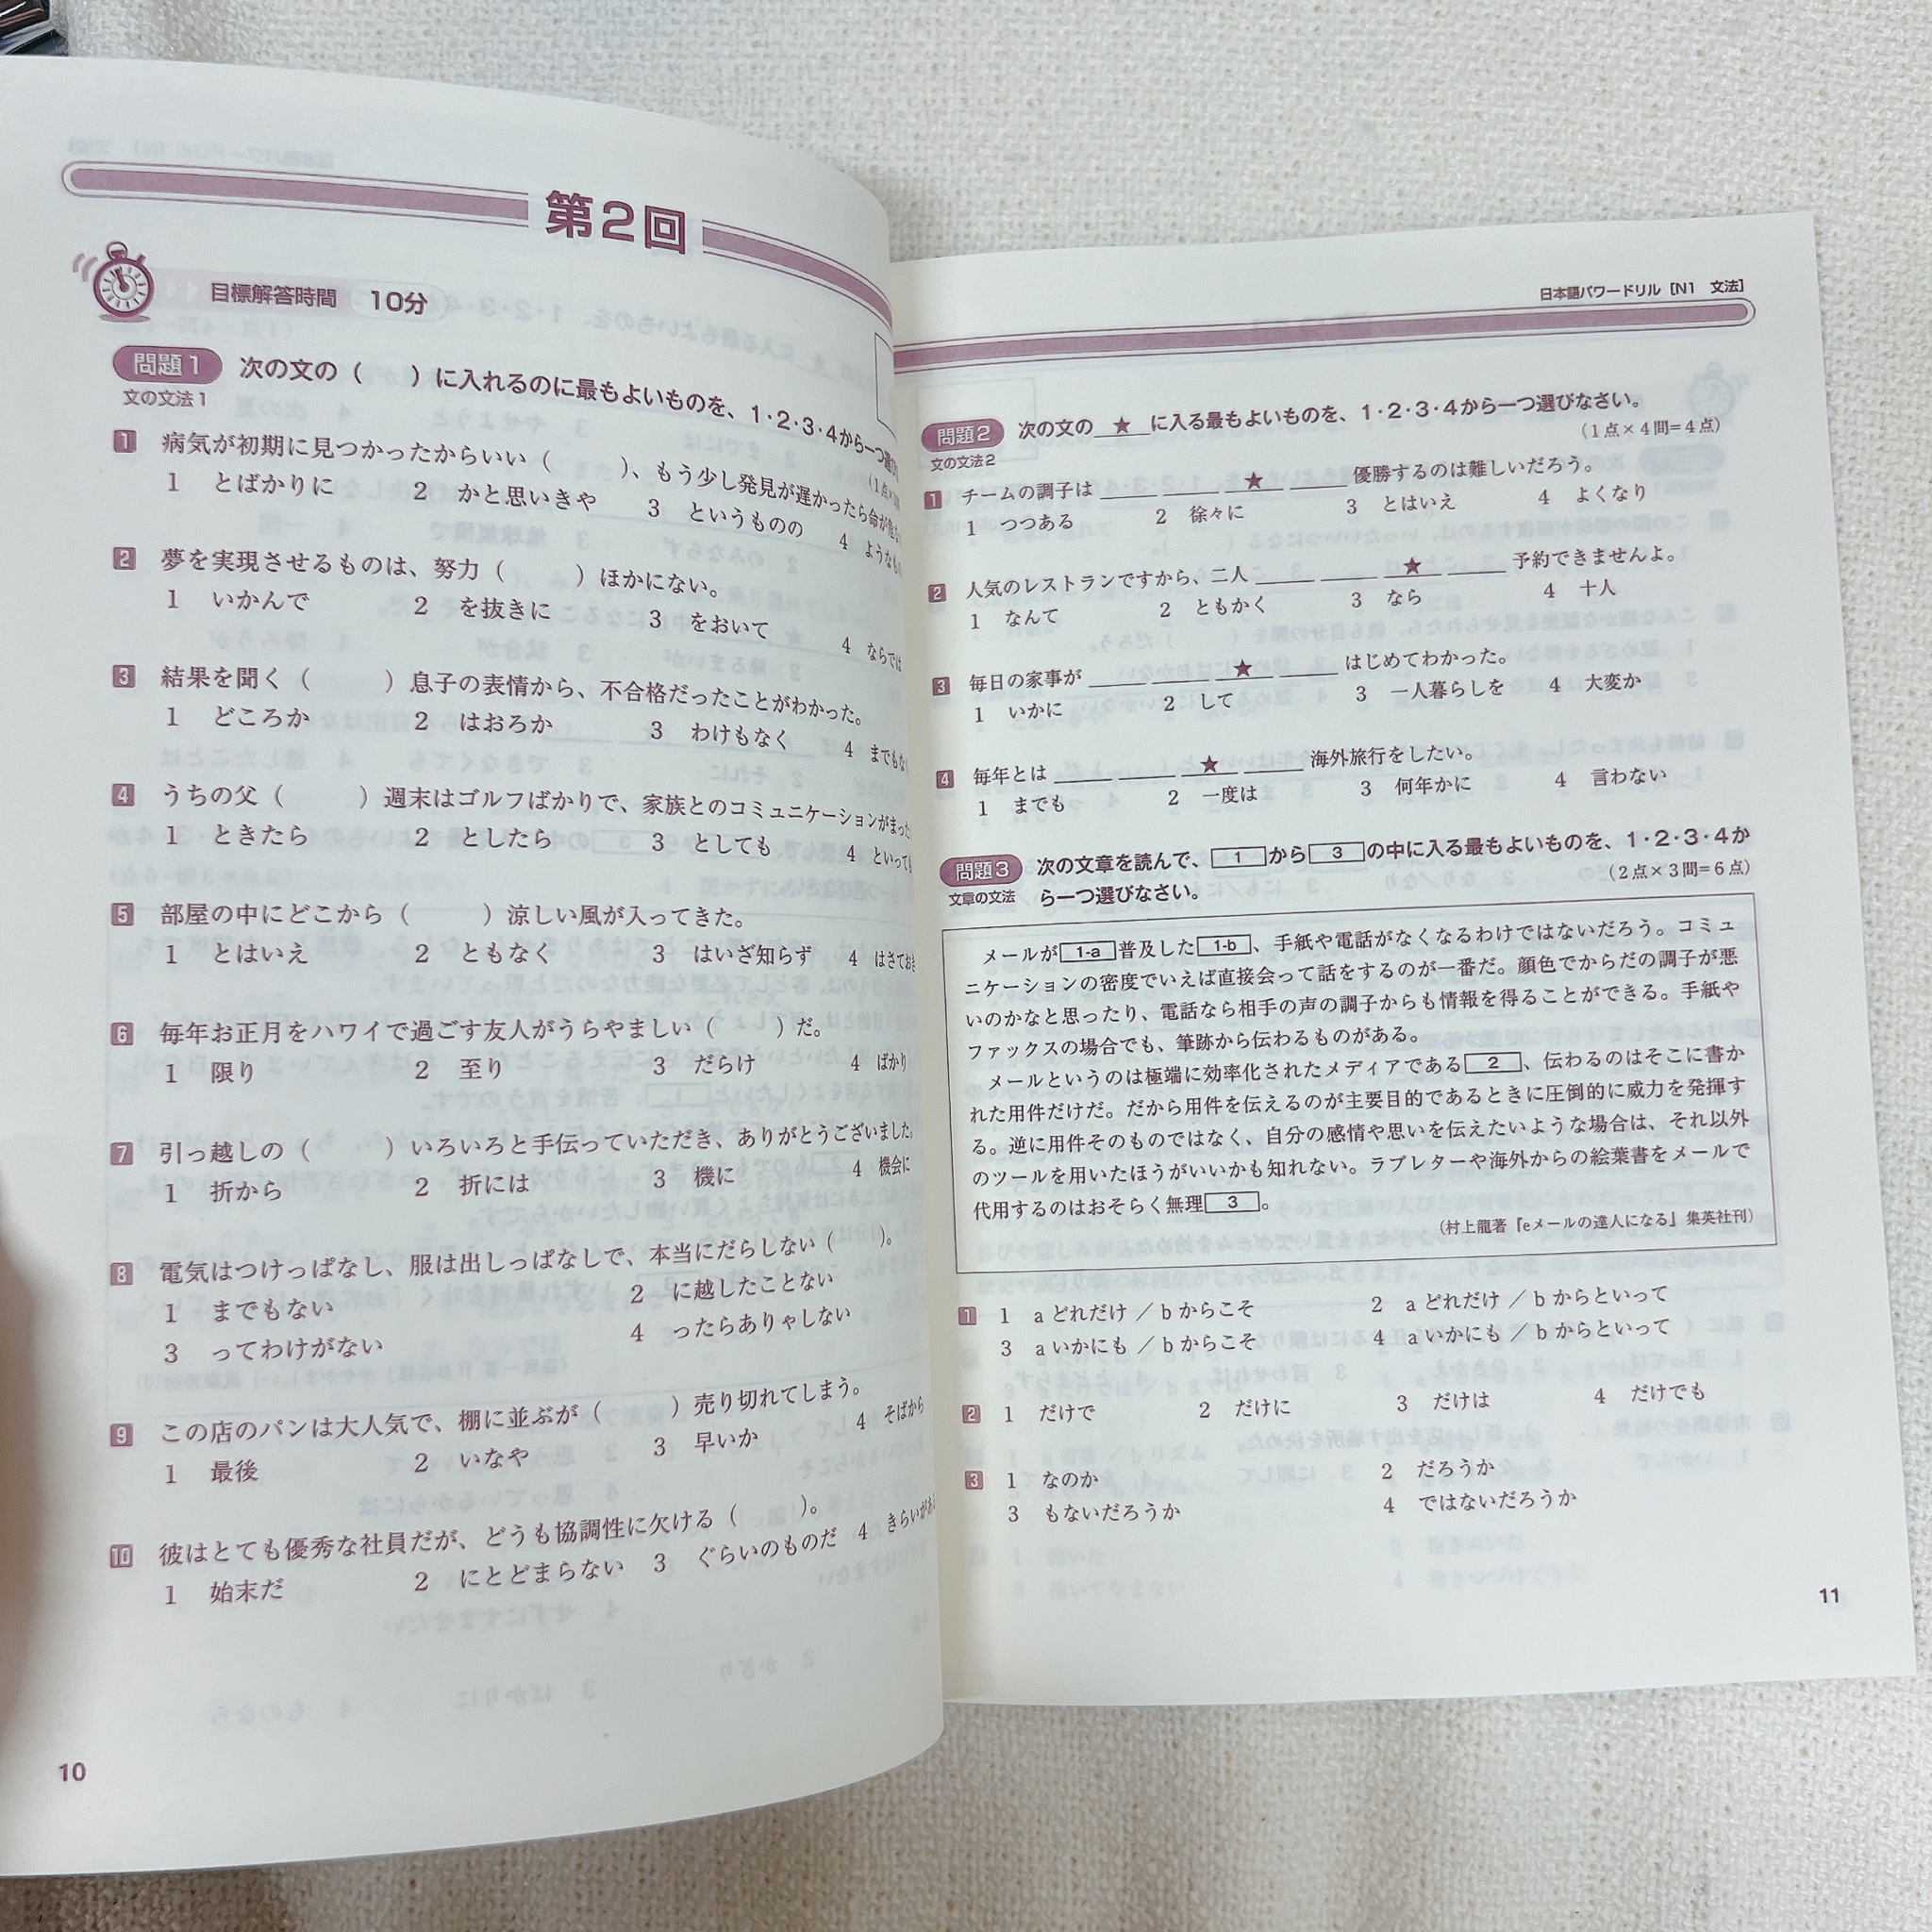 第2回
目標解答時間 10分
問題1 次の文の( )に入れるのに最もよいものを、1・2・3・4から一つ選び
文の文法1
(1点×
1 病気が初期に見つかったからいい( )、もう少し発見が遅かったら命が危な
1 とばかりに 2 かと思いきや 3 というものの 4 ようなもの
2 夢を実現させるものは、努力( )ほかにない。
1 いかんで 2 を抜きに 3 をおいて 4 ならでは
3 結果を聞く( )息子の表情から、不合格だったことがわかった。
1 どころか 2 はおろか 3 わけもなく 4 までもな
4 うちの父( )週末はゴルフばかりで、家族とのコミュニケーションがまった
1 ときたら 2 としたら 3 としても 4 といっても
5 部屋の中にどこから( )涼しい風が入ってきた。
1 とはいえ 2 ともなく 3 はいざ知らず 4 はさておき
6 毎年お正月をハワイで過ごす友人がうらやましい( )だ。
1 限り 2 至り 3 だらけ 4 ばかり
7 引っ越しの( )いろいろと手伝っていただき、ありがとうございました。
1 折から 2 折には 3 機に 4 機会に
8 電気はつけっぱなし、服は出しっぱなしで、本当にだらしない( )。
1 までもない 2 に越したことない
3 ってわけがない 4 ったらありゃしない
9 この店のパンは大人気で、棚に並ぶが( )売り切れてしまう。
1 最後 2 いなや 3 早いか 4 そばから
10 彼はとても優秀な社員だが、どうも協調性に欠ける( )。
1 始末だ 2 にとどまらない 3 ぐらいのものだ 4 きらいがあ
10
日本語パワードリル [N1 文法]
問題2 次の文の ★ に入る最もよいものを、1・2・3・4から一つ選びなさい。
文の文法2
(1点×4問=4点)
1 チームの調子は ____ ____ __★__ ____ 優勝するのは難しいだろう。
1 つつある 2 徐々に 3 とはいえ 4 よくなり
2 人気のレストランですから、二人 ____ ____ __★__ ____ 予約できませんよ。
1 なんて 2 ともかく 3 なら 4 十人
3 毎日の家事が ____ ____ __★__ ____ はじめてわかった。
1 いかに 2 して 3 一人暮らしを 4 大変か
4 毎年とは ____ ____ __★__ ____ 海外旅行をしたい。
1 までも 2 一度は 3 何年かに 4 言わない
問題3 次の文章を読んで、 1 から 3 の中に入る最もよいものを、1・2・3・4か
文章の文法 ら一つ選びなさい。
(2点×3問=6点)
メールが 1-a 普及した 1-b 、手紙や電話がなくなるわけではないだろう。コミュ
ニケーションの密度でいえば直接会って話をするのが一番だ。顔色でからだの調子が悪
いのかなと思ったり、電話なら相手の声の調子からも情報を得ることができる。手紙や
ファックスの場合でも、筆跡から伝わるものがある。
メールというのは極端に効率化されたメディアである 2 、伝わるのはそこに書か
れた用件だけだ。だから用件を伝えるのが主要目的であるときに圧倒的に威力を発揮す
る。逆に用件そのものではなく、自分の感情や思いを伝えたいような場合は、それ以外
のツールを用いたほうがいいかも知れない。ラブレターや海外からの絵葉書をメールで
代用するのはおそらく無理 3 。
(村上龍著『eメールの達人になる』集英社刊)
1 1 a どれだけ / b からこそ 2 a どれだけ / b からといって
3 a いかにも / b からこそ 4 a いかにも / b からといって
2 1 だけで 2 だけに 3 だけは 4 だけでも
3 1 なのか 2 だろうか
3 もないだろうか 4 ではないだろうか
11